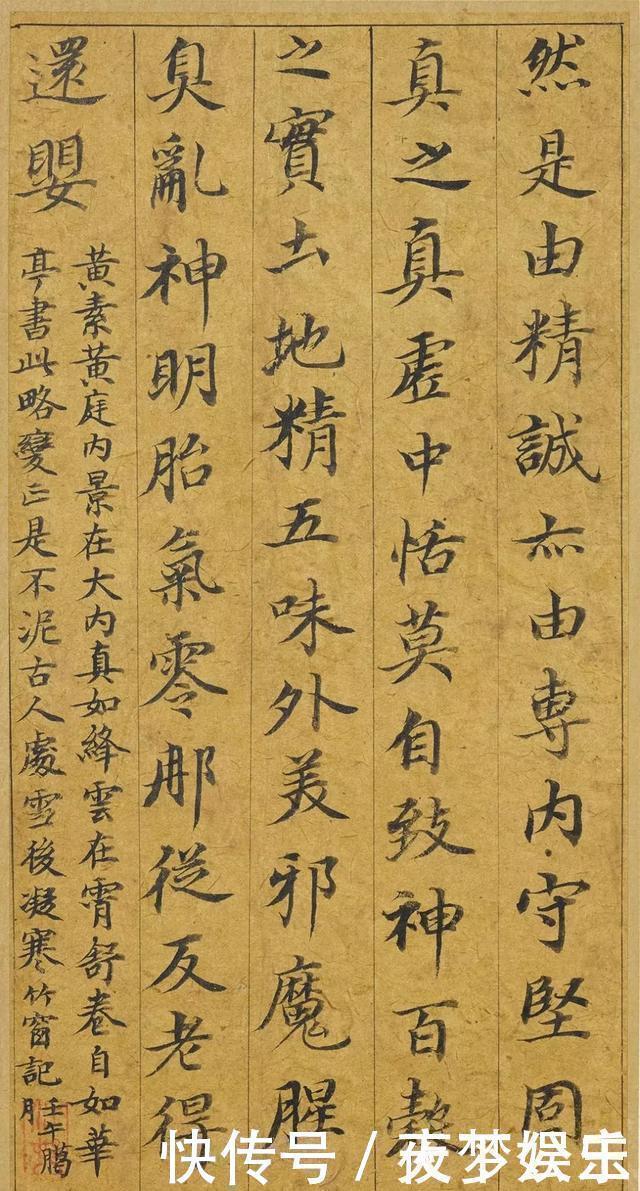 然是由精誠亦由専内守堅固
真之真虛中恬莫自致神百穀
之實土地精五味外美邪魔腥
臭亂神明胎氣零那從反老得
還嬰
黃素黃庭内景在大内真如絳雲在霄舒卷自如華
亭書此略變正是不泥古人處雪後凝寒竹窗記
壬午臈
月
快传号 / 夜梦娱乐